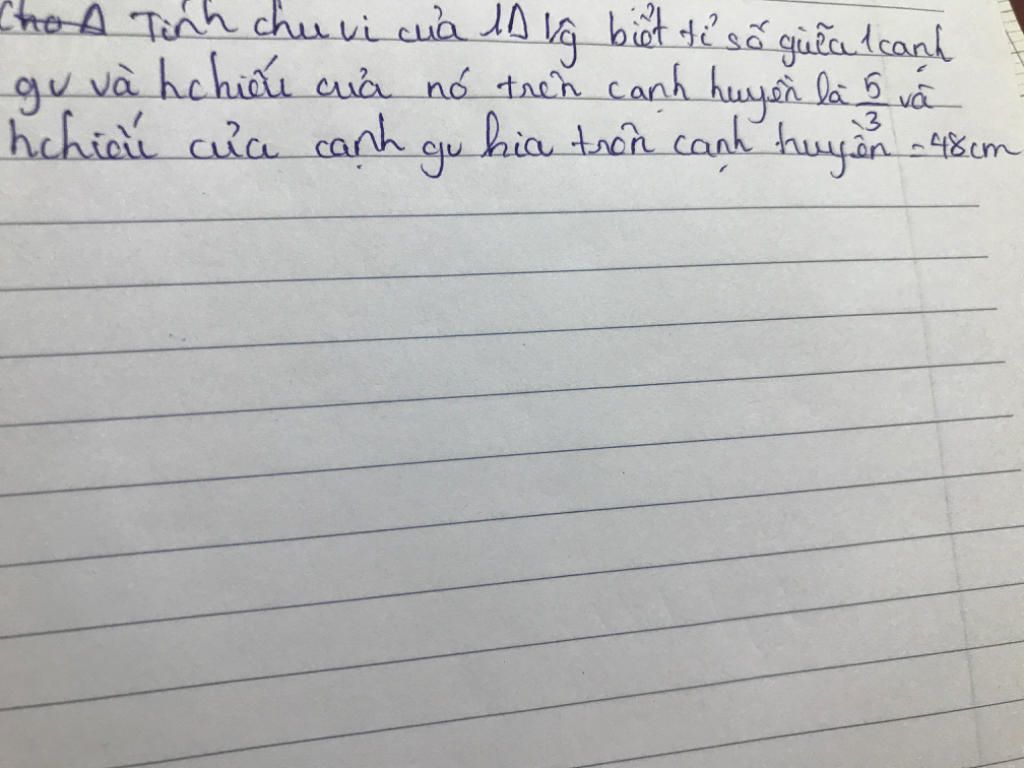 Cho Δ Tính chu vi của 1Δ vg biết tỉ số giữa 1 cạnh
gv và hchiếu của nó trên cạnh huyền là 5/3 và
hchiếu của cạnh gv kia trên cạnh huyền = 48cm